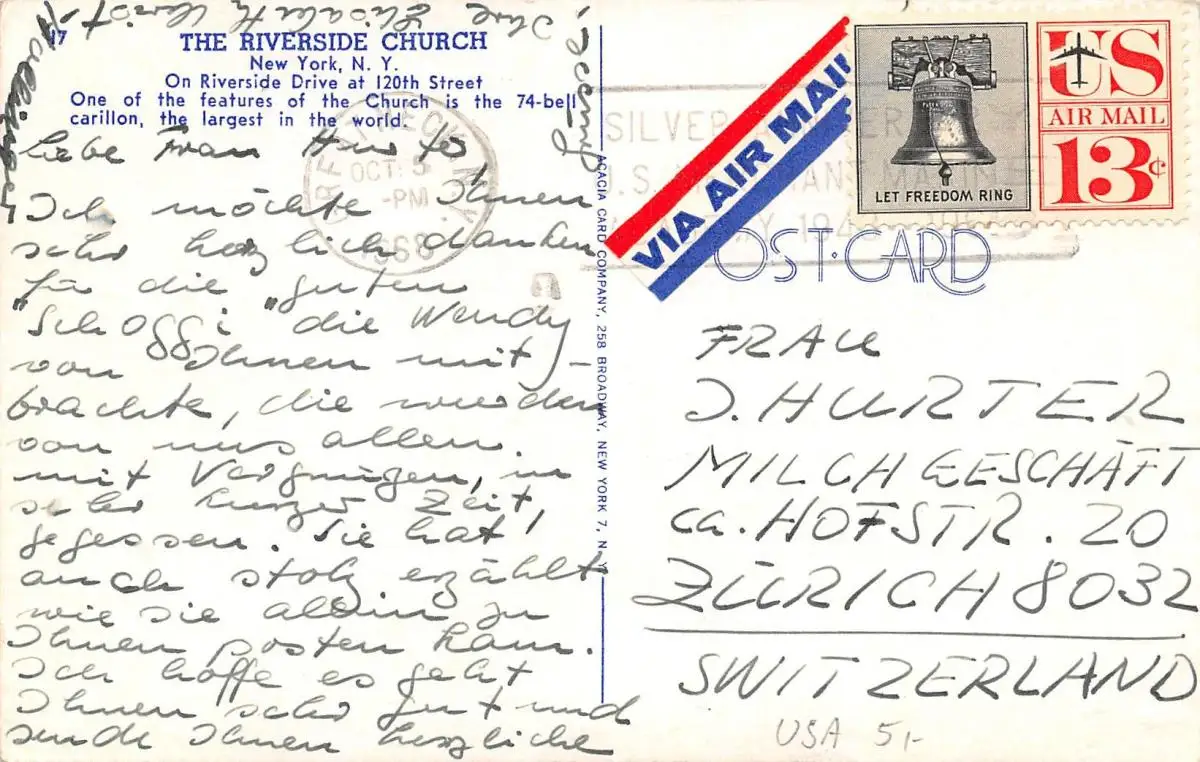 THE RIVERSIDE CHURCH
New York, N. Y.
On Riverside Drive at 120th Street
One of the features of the Church is the 74-bell
carillon, the largest in the world.
Liebe Frau Hurter,
Ich möchte Ihnen
sehr herzlich danken
für die guten
"Schoggi" die Wendy
von Ihnen mit-
brachte, die wurden
von uns allen
mit Vergnügen, in
sehr kurzer Zeit,
gegessen. Sie hat
auch stolz erzählt
wie sie allein zu
Ihnen posten kam.
Ich hoffe es geht
Ihnen sehr gut und
sende Ihnen herzliche
Ihre Elisabeth
ACACIA CARD COMPANY, 258 BROADWAY, NEW YORK 7, N. Y.
OCT 5
-PM
1968
SILVER
U.S.
VIA AIR MAIL
LET FREEDOM RING
US
AIR MAIL
13¢
POST·CARD
FRAU
J. HURTER
MILCHGESCHÄFT
ca. HOFSTR. 20
ZÜRICH 8032
SWITZERLAND
USA 5,-